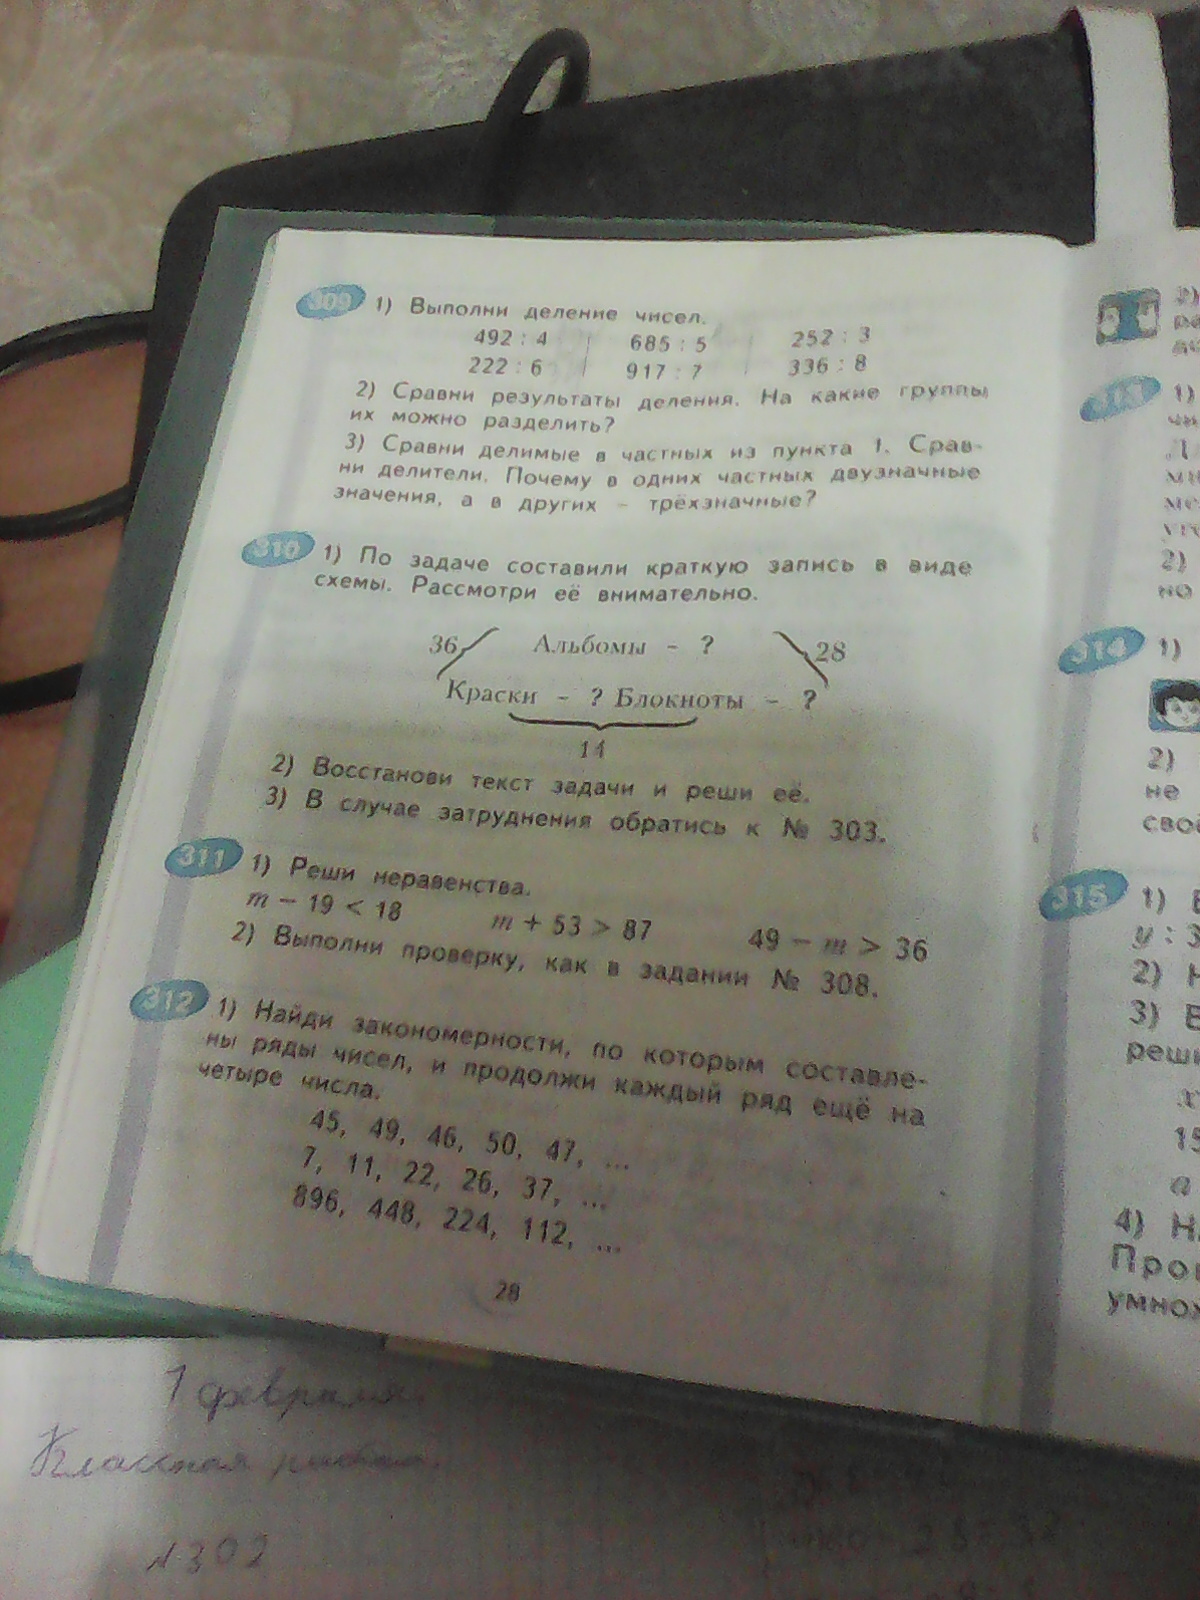 309 1) Выполни деление чисел.
492 : 4 685 : 5 252 : 3
222 : 6 917 : 7 336 : 8
2) Сравни результаты деления. На какие группы
их можно разделить?
3) Сравни делимые в частных из пункта 1. Срав-
ни делители. Почему в одних частных двузначные
значения, а в других – трёхзначные?
310 1) По задаче составили краткую запись в виде
схемы. Рассмотри её внимательно.
36 Альбомы – ? 28
Краски – ? Блокноты – ?
14
2) Восстанови текст задачи и реши её.
3) В случае затруднения обратись к № 303.
311 1) Реши неравенства.
m – 19 < 18 m + 53 > 87 49 – m > 36
2) Выполни проверку, как в задании № 308.
312 1) Найди закономерности, по которым составле-
ны ряды чисел, и продолжи каждый ряд ещё на
четыре числа.
45, 49, 46, 50, 47, ...
7, 11, 22, 26, 37, ...
896, 448, 224, 112, ...
28
2)
313 1)
2)
но
314 1)
2)
не
315 1)
y : 3
2)
3)
15
a
4)
1 февраля.
Классная работа.
№302